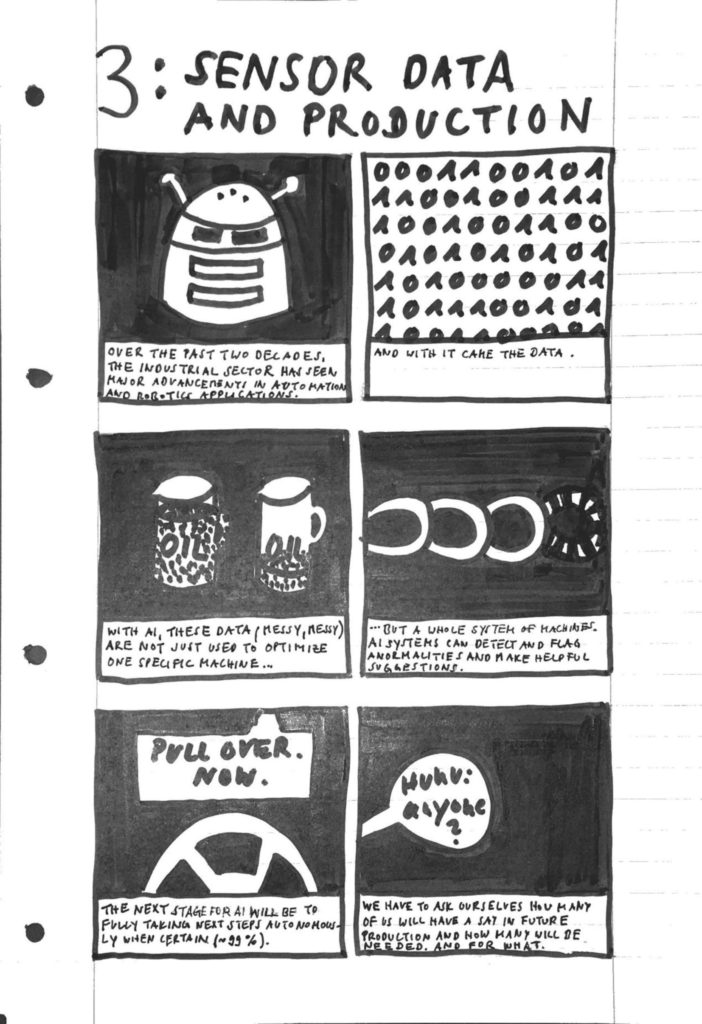 3: SENSOR DATA
AND PRODUCTION
OVER THE PAST TWO DECADES,
THE INDUSTRIAL SECTOR HAS SEEN
MAJOR ADVANCEMENTS IN AUTOMATION
AND ROBOTICS APPLICATIONS.
0001100101
AND WITH IT CAME THE DATA.
OIL
OIL
WITH AI, THESE DATA (MESSY, MESSY)
ARE NOT JUST USED TO OPTIMIZE
ONE SPECIFIC MACHINE...
...BUT A WHOLE SYSTEM OF MACHINES.
AI SYSTEMS CAN DETECT AND FLAG
ANORMALITIES AND MAKE HELPFUL
SUGGESTIONS.
PULL OVER.
NOW.
THE NEXT STAGE FOR AI WILL BE TO
FULLY TAKING NEXT STEPS AUTONOMOUS-
LY WHEN CERTAIN (~99%).
HUHU:
anyone
?
WE HAVE TO ASK OURSELVES HOW MANY
OF US WILL HAVE A SAY IN FUTURE
PRODUCTION AND HOW MANY WILL BE
NEEDED. AND FOR WHAT.